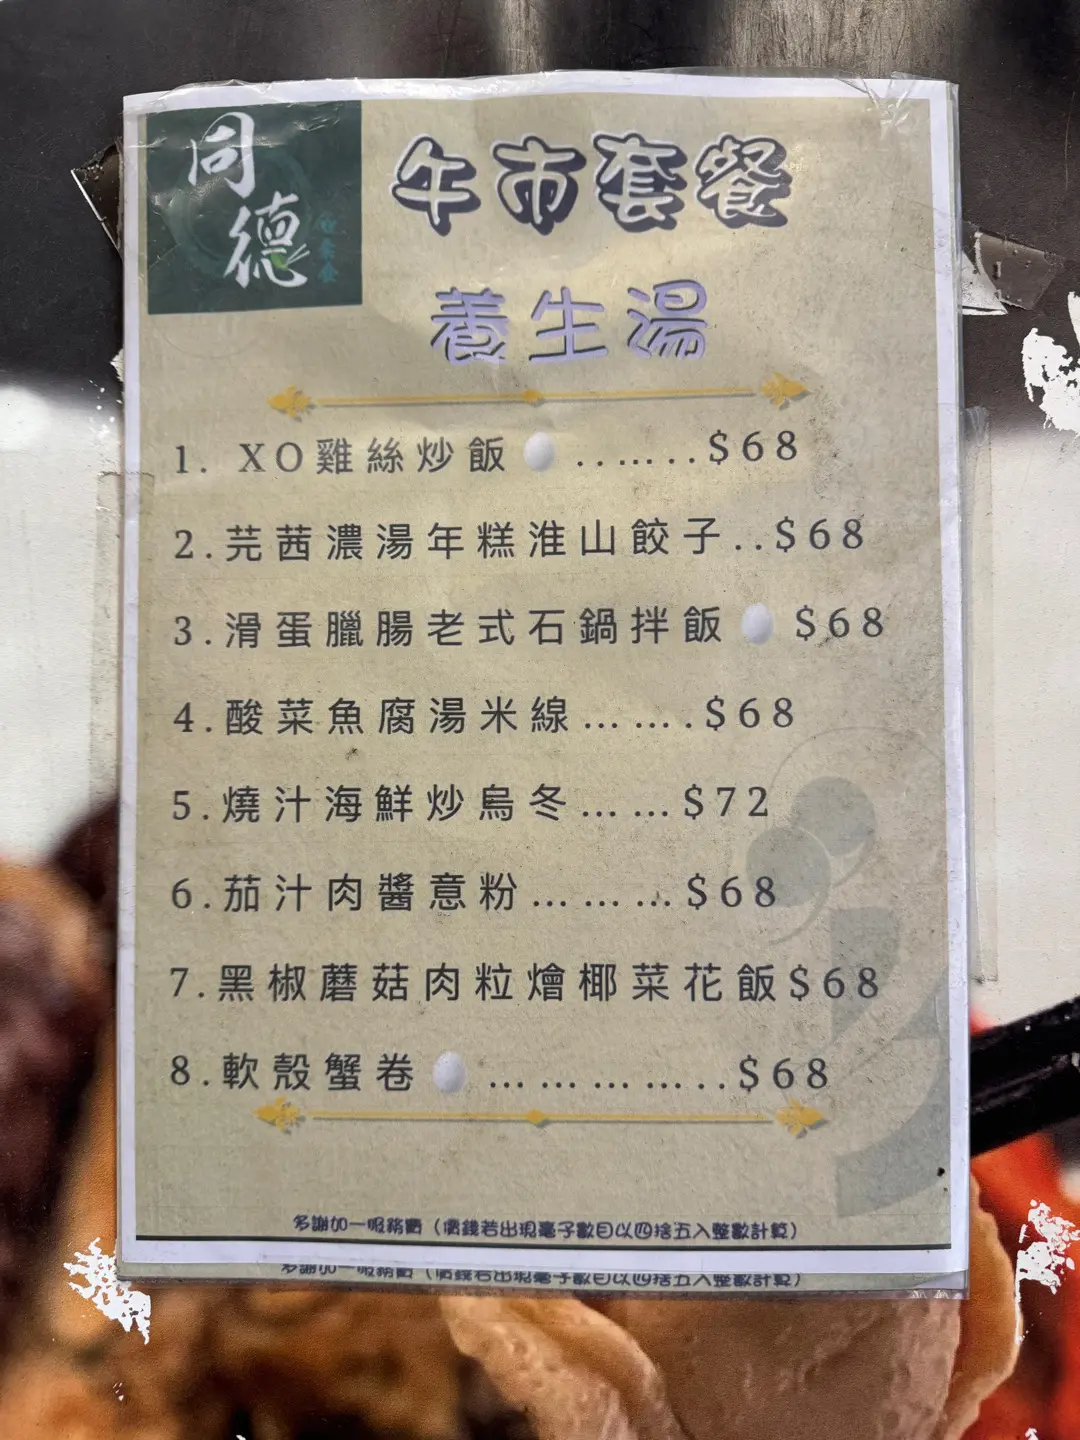 同德
素食
午市套餐
養生湯
1. XO雞絲炒飯 .......$68
2.芫茜濃湯年糕淮山餃子..$68
3.滑蛋臘腸老式石鍋拌飯 $68
4.酸菜魚腐湯米線…….$68
5.燒汁海鮮炒烏冬……$72
6.茄汁肉醬意粉………$68
7.黑椒蘑菇肉粒燴椰菜花飯$68
8.軟殼蟹卷 …………..$68
多謝加一服務費（價錢若出現毫子數目以四捨五入整數計算）
多謝加一服務費（價錢若出現毫子數目以四捨五入整數計算）